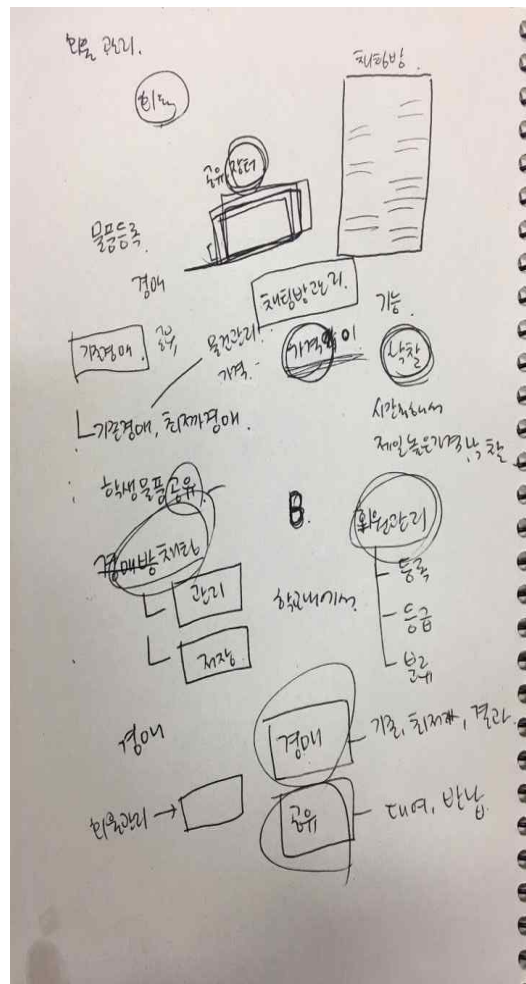 회원 관리.
채팅방
회원
공유 장터
물품등록.
경매
채팅방관리.
기능.
기존경매.
공유,
물건관리
가격.
가격
낙찰
기존경매, 최저가경매.
시간정해서
제일높은가격 낙찰
학생물품공유.
B.
회원관리
경매방채팅
등록
관리
학교내에서.
등급
저장
분류
경매
경매
기존, 최저가, 결과.
회원관리 →
공유
대여, 반납